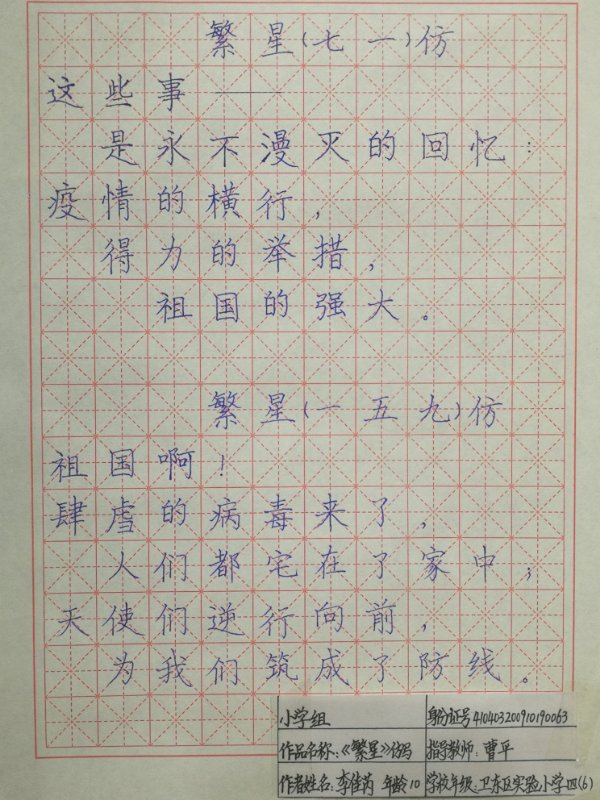 繁星(七一)仿
这些事——
是永不漫灭的回忆：
疫情的横行，
得力的举措，
祖国的强大。
繁星(一五九)仿
祖国啊！
肆虐的病毒来了，
人们都宅在了家中；
天使们逆行向前，
为我们筑成了防线。
小学组 身份证号410403200910190063
作品名称：《繁星》仿写 指导教师：曹平
作者姓名：李佳芮 年龄10 学校年级：卫东区实验小学四(6)